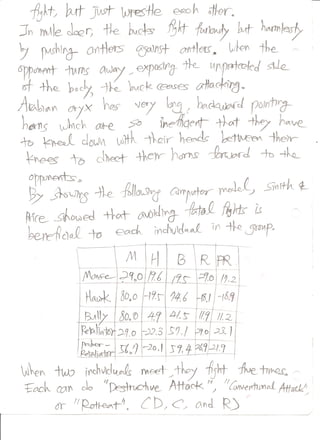 fight, but just wrestle each other.
In mule deer, the bucks fight furiously but harmlessly
by pushing antlers against antlers. When the
opponent turns away, exposing the unprotected side
of the body, the buck ceases attacking.
Arabian oryx has very long, backward pointing
horns which are so inefficient that they have
to kneel down with their heads between their
knees to direct their horns forward to the
opponents.
By showing the following computer model, Smith &
Price showed that avoiding fatal fights is
beneficial to each individual in the group.
M H B R PR
Mouse 29.0 19.6 19.5 29.0 17.2
Hawk 80.0 -19.5 74.6 -18.1 -18.9
Bully 80.0 4.9 41.5 11.9 11.2
Retaliator 29.0 -22.3 57.1 29.0 23.1
Prober-Retaliator 56.7 -20.1 59.4 26.9 21.9
When two individuals meet, they fight five times.
Each can do "Destructive Attack", "Conventional Attack",
or "Retreat". (D, C, and R)